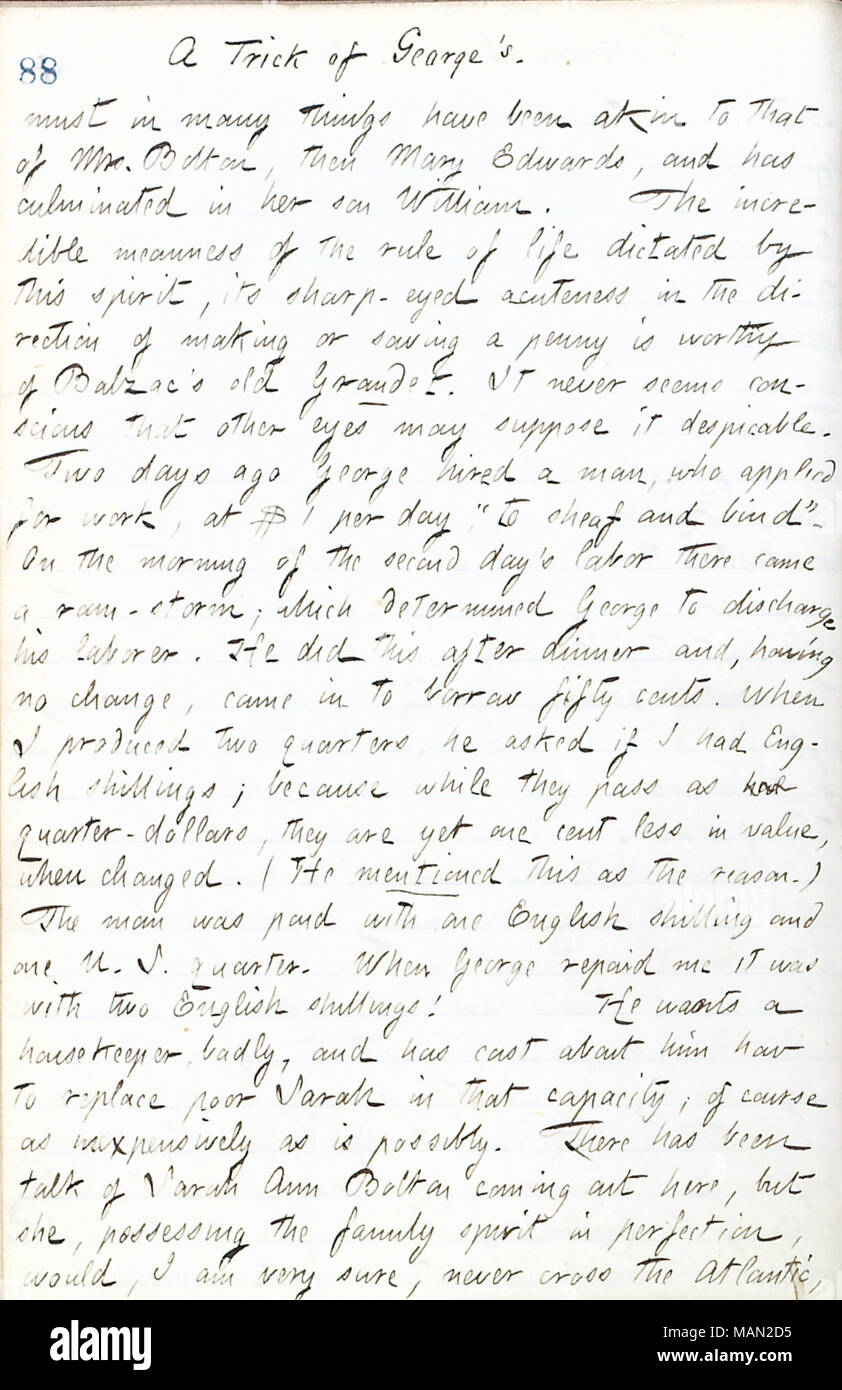 88
A Trick of George's.
must in many things have been akin to that
of Mrs. Bolton, then Mary Edwards, and has
culminated in her son William. The incre-
dible meanness of the rule of life dictated by
this spirit, its sharp-eyed acuteness in the di-
rection of making or saving a penny is worthy
of Balzac's old Grandet. It never seems con-
scious that other eyes may suppose it despicable.
Two days ago George hired a man, who applied
for work, at $1 per day, "to sheaf and bind".
On the morning of the second day's labor there came
a rain-storm, which determined George to discharge
his laborer. He did this after dinner and, having
no change, came in to borrow fifty cents. When
I produced two quarters he asked if I had Eng-
lish shillings; because while they pass as
quarter-dollars, they are yet one cent less in value,
when changed. (He mentioned this as the reason.)
The man was paid with one English shilling and
one U. S. quarter. When George repaid me it was
with two English shillings! He wants a
housekeeper badly, and has cast about him how
to replace poor Sarah in that capacity, of course
as inexpensively as is possibly. There has been
talk of Sarah Ann Bolton coming out here, but
she, possessing the family spirit in perfection,
would, I am very sure, never cross the Atlantic,
alamy
Image ID: MAN2D5
www.alamy.com